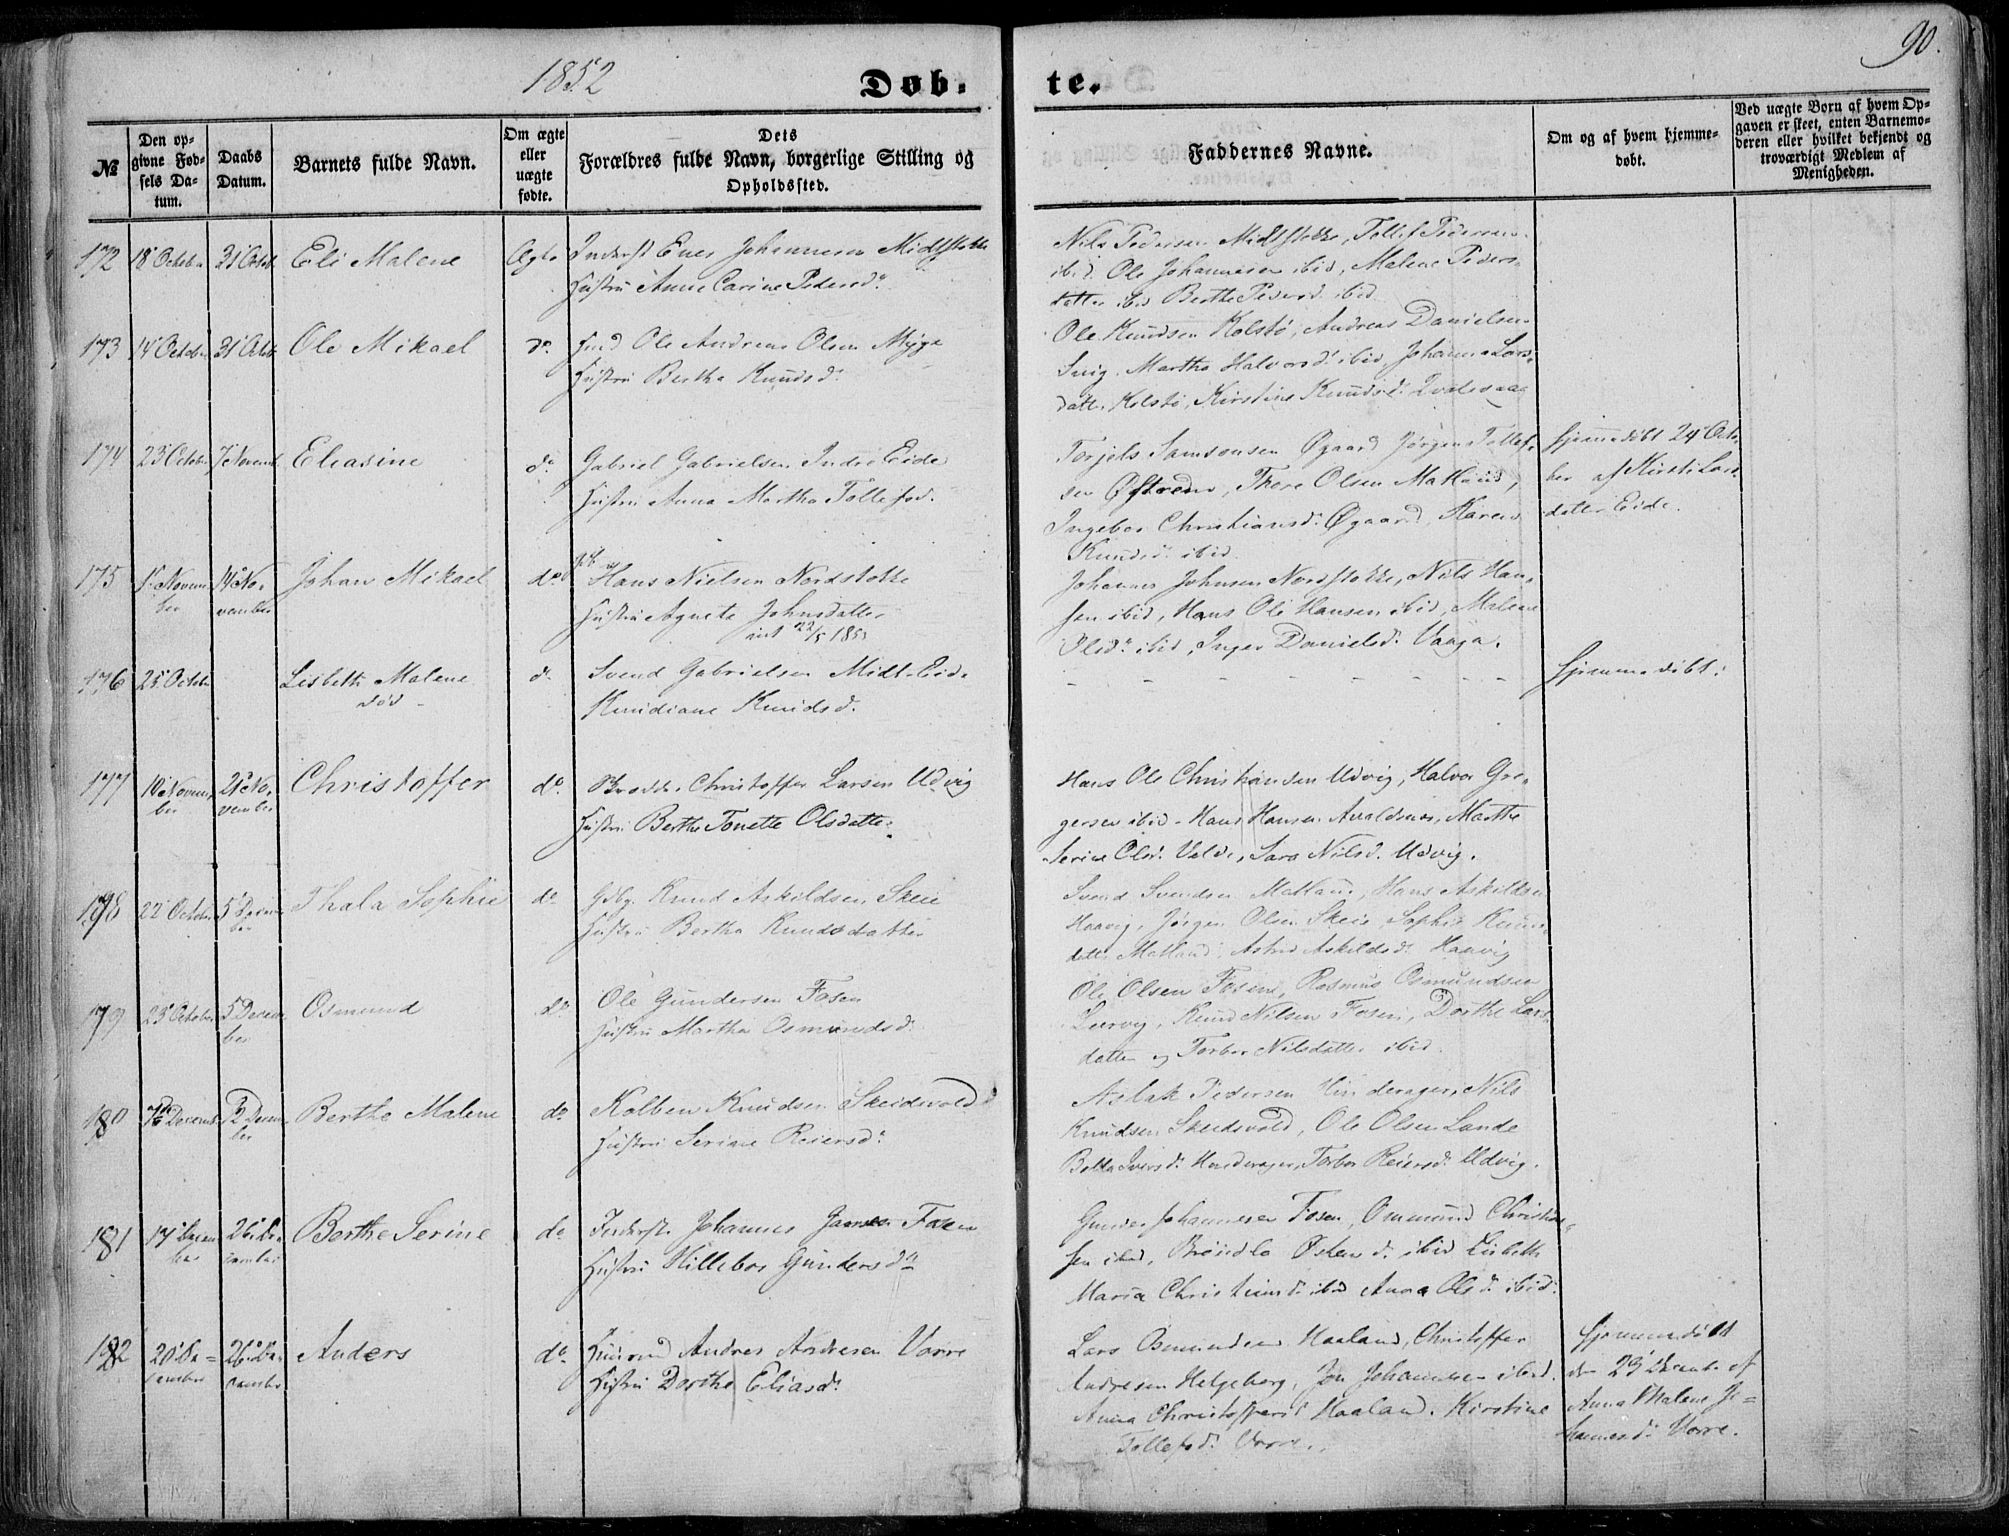 90.
1852
Døb-
te.
№
Den op-
givne Fød-
sels Da-
tum.
Daabs
Datum.
Barnets fulde Navn.
Om ægte
eller
uægte
fødte.
Dets
Forældres fulde Navn, borgerlige Stilling og
Opholdssted.
Faddernes Navne.
Om og af hvem hjemme-
døbt.
Ved uægte Børn af hvem Op-
gaven er skeet, enten Barnemo-
deren eller hvilket bekjendt og
troværdigt Medlem af
Menigheden.
172 18 Octob 31 Octob Eli Malene Ægte Inderst Enes Johannesen Midtstokke
Hustru Anne Carine Pedersd.
Nils Pedersen Midtstokke, Tollef Pedersen
ibid. Ole Johannesen ibid, Malene Peders-
datter ibid Berthe Pedersd. ibid
173 14 October 31 Octob Ole Mikael do. Ole Andreas Olsen Myge
Hustru Bertha Knudsd.
Ole Knudsen Kolstø, Andreas Danielsen
Snig. Martha Halvorsd. ibid Johanna Lars-
datter Kolstø, Kirstine Knudsd.
174 23 Octobr 7 Novemb Eliasine do Gabriel Gabrielsen Indre Eide
Hustru Anna Martha Tollefsd.
Torjels Samsonsen Øgaard Jørgen Tollef-
sen Østrem, Thore Olsen Matland,
Ingebor Christiansd. Øgaard, Karen
Knudsd. ibid.
Hjemmedøbt 24 Octo-
ber af Kirsti Lars-
datter Eide.
175 1 Novem-
ber 14 No-
vember Johan Mikael do. Hans Nielsen Nordstokke
Hustru Agnete Johnsdatter
int 22/5 1853
Johannes Johnsen Nordstokke, Nils Han-
sen ibid, Hans Ole Hansen ibid, Malene
Olsd. ibid, Inger Danielsd. Vaaga.
176 25 Octobr Lisbeth Malene do Svend Gabrielsen Midt-Eide
død
Knudiane Knudsd.
- - - - - - - -
Hjemmedøbt:
177 10 Novem-
ber 21 No-
vember Christoffer do. Christoffer Larsen Udvig
Hustru Berthe Tonette Olsdatter
Hans Ole Christiansen Udvig, Halvor Gre-
gersen ibid - Hans Hansen Avaldsnæs, Marthe
Serine Olsd. Velde, Sara Nilsd. Udvig.
178 22 October 5 Decem-
ber Thala Sophie do Gdbr. Knud Askildsen Skeie
Hustru Bertha Knudsdatter
Svend Svendsen Matland, Hans Askildsen
Haavig, Jørgen Olsen Skeie, Sophie Knuds-
datter Matland, Astrid Askildsd. Haavig
179 25 October 5 Decem-
ber Osmund do. Ole Gundersen Fosen
Hustru Martha Osmundsd.
Ole Olsen Fosen, Rasmus Osmundsen
Leervig, Knud Nilsen Fosen, Dorthe Lars-
datter og Torbor Nilsdatter ibid.
180 Decemb 12 Decem-
ber Berthe Malene do Kolben Knudsen Skeidsvold
Hustru Serine Reiersd.
Aslak Pedersen Hinderager, Nils
Knudsen Skeidsvold, Ole Olsen Lande
Iversd. Hinderager, Torbor Reiersd. Udvig.
181 17 Decem-
ber 26 De-
cember Berthe Serine do Inderst. Johannes Fosen
Hustru Hillebor Gundersd.
Gunder Johannesen Fosen, Ommund Christian-
sen ibid, Brøndla Østend. ibid Lisbeth
Maria Christiansd. ibid Anna Olsd. ibid.
182 20 De-
cember 26 De-
cember Anders do. Huusmd Andres Andresen Vorre
Hustru Dorthe Eliasd.
Lars Osmundsen Haaland, Christoffer
Andresen Helgeberg, Jon Johannesen ibid.
Anna Christoffersd Haaland. Kirstine
Tollefsd. Vorre.
Hjemmedøbt
den 23 Decemb. af
Anna Malene Jo-
hannesd. Vorre.